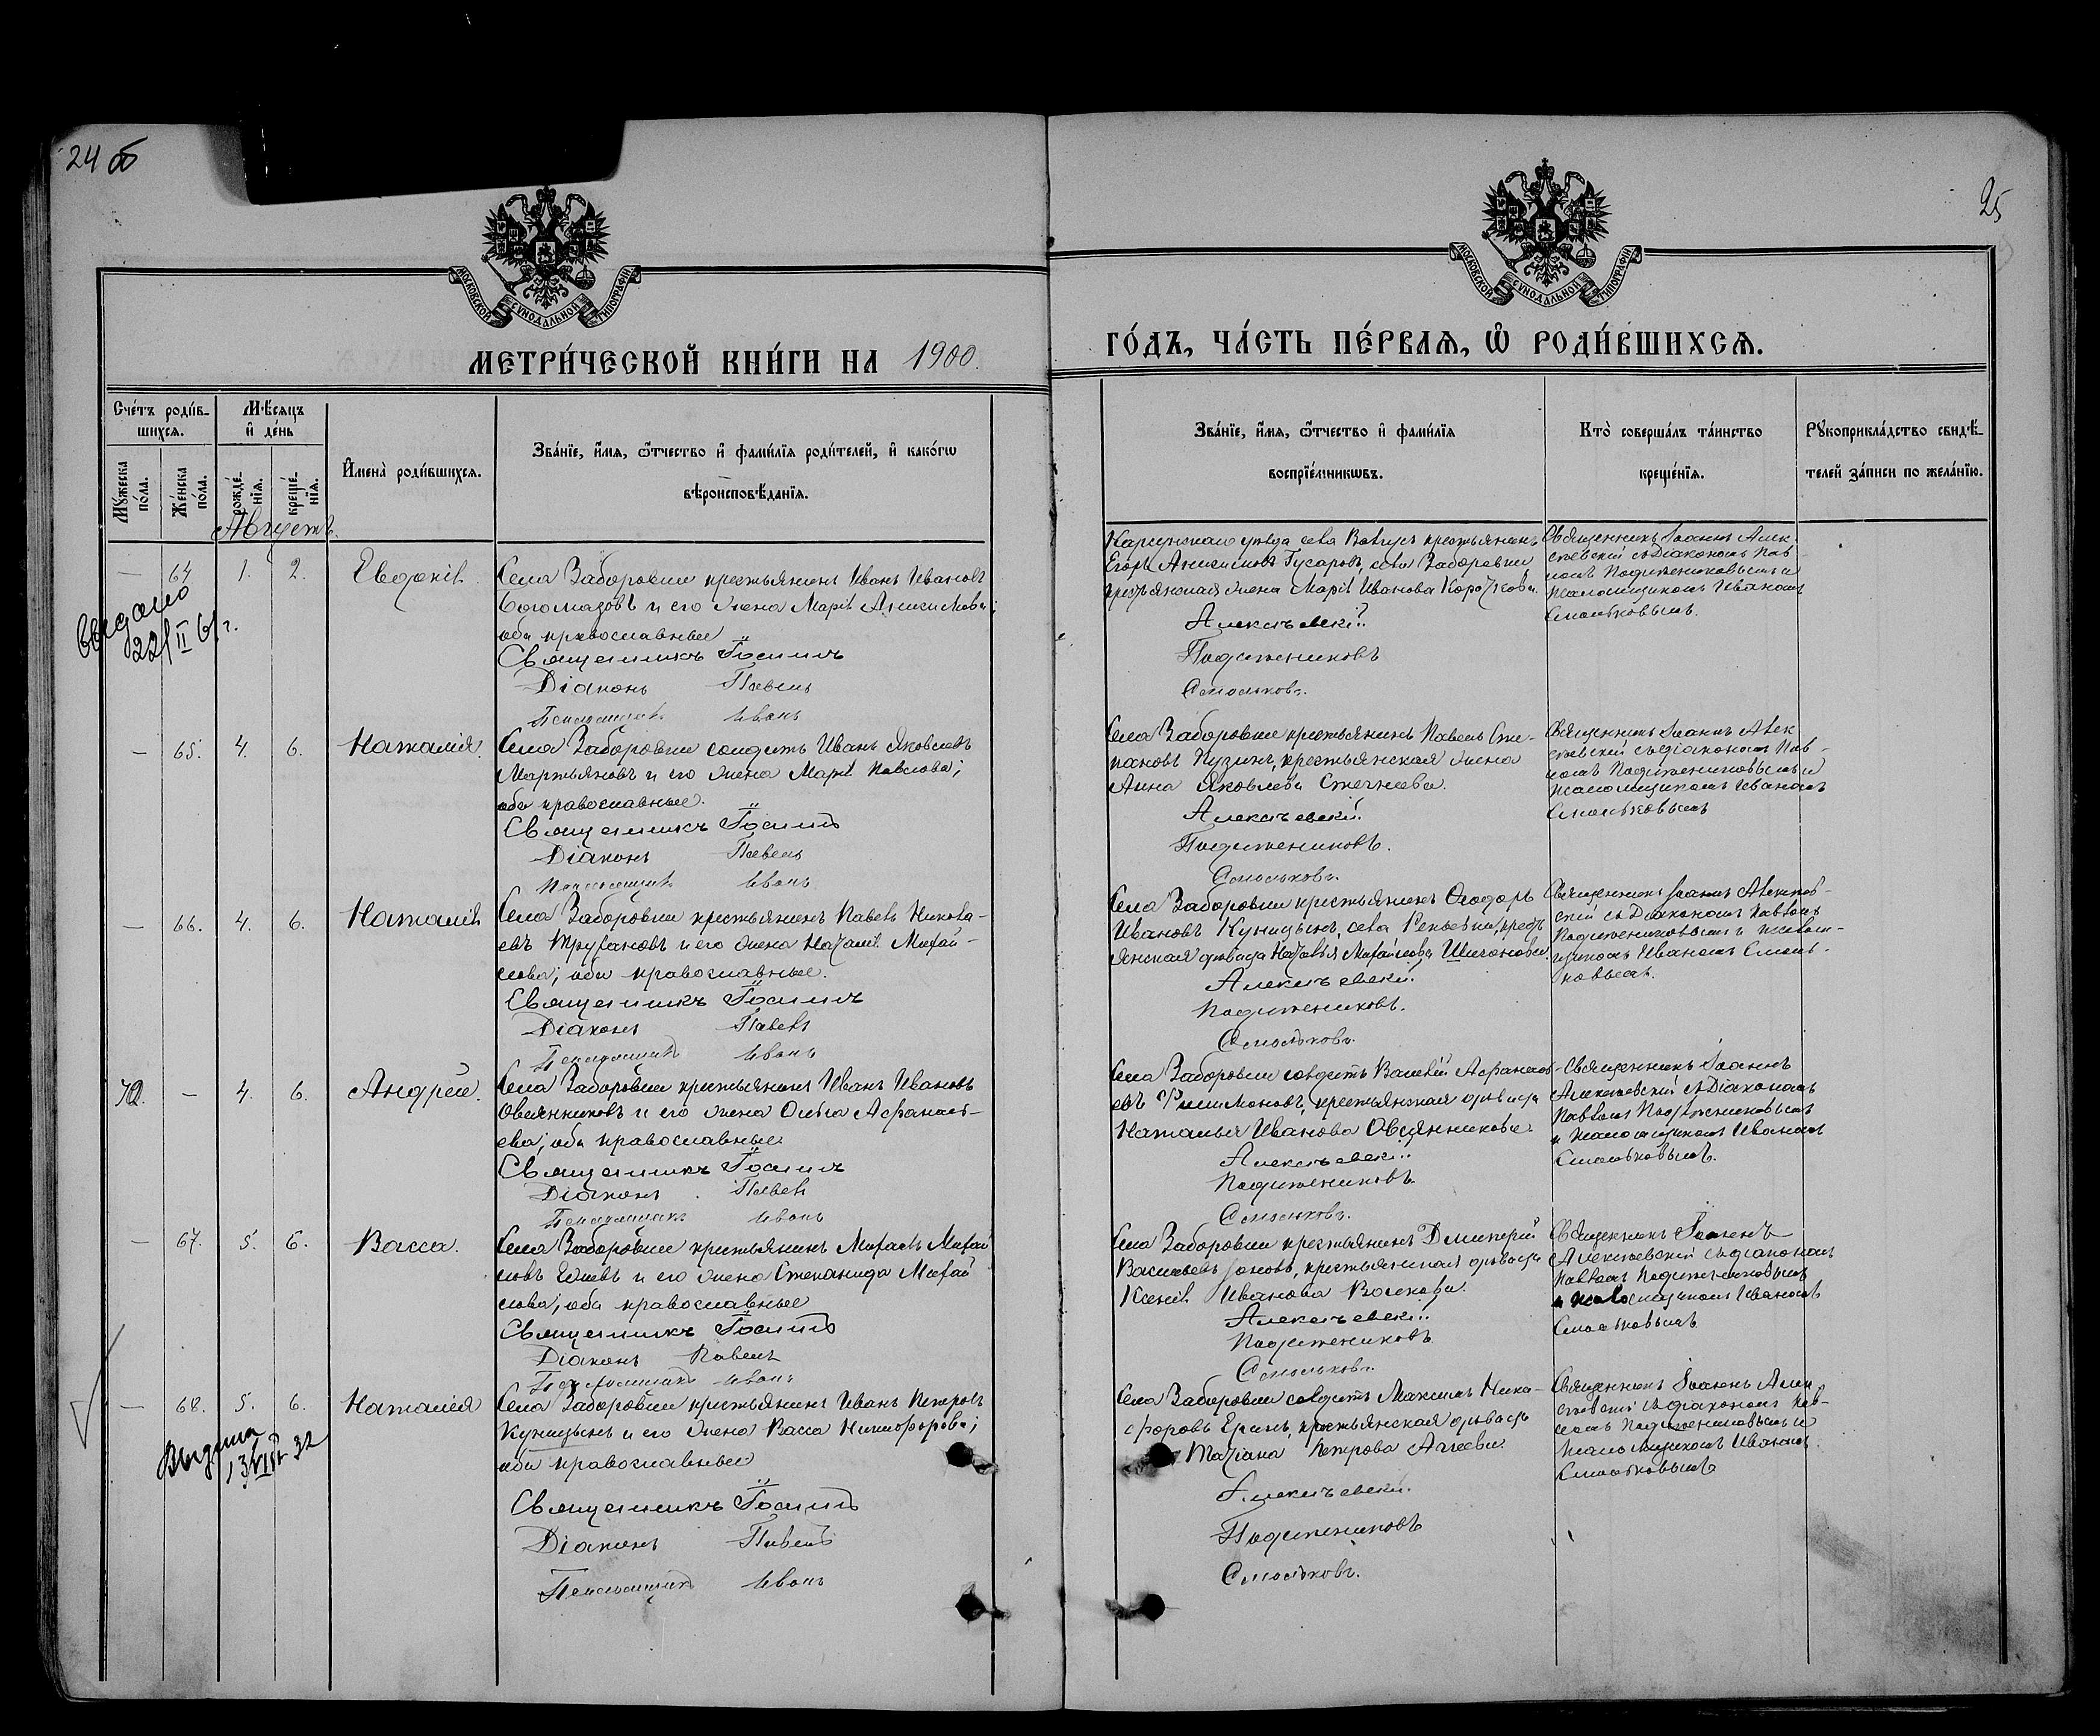 24 об
25
МОСКОВСКОЙ СѴНОДАЛЬНОЙ ТИПОГРАФІИ
МОСКОВСКОЙ СѴНОДАЛЬНОЙ ТИПОГРАФІИ
МЕТРИ́ЧЕСКОЙ КНИ́ГИ НА 1900.
ГО́ДЪ, ЧА́СТЬ ПЕ́РВАѦ, Ѽ РОДИ́ВШИХСѦ.
Сче́тъ роди́в-
шихсѧ.
Мꙋ́жеска
по́ла.
Же́нска
по́ла.
Мѣ́сѧцъ
и҆ де́нь
рожде́-
нїѧ.
креще́-
нїѧ.
И҆мена̀ роди́вшихсѧ.
Зва́нїе, и҆́мѧ, ѻ҆́тчество и҆ фамѝлїѧ роди́телей, и҆ како́гѡ
вѣроисповѣ́данїѧ.
Зва́нїе, и҆́мѧ, ѻ҆́тчество и҆ фами́лїѧ
воспрїе́мникѡвъ.
Кто̀ соверша́лъ та́инство
креще́нїѧ.
Рꙋкоприкла́дство свидѣ́-
телей за́писи по жела́нїю.
Августъ.
— 64 1. 2. Евдокія.
Села Заборовки крестьянинъ Иванъ Ивановъ
Богомазовъ и его жена Марія Анисимова;
оба православные
Священникъ Іоаннъ
Діаконъ Павелъ
Псаломщикъ Иванъ
уѣзда села крестьянинъ
Егоръ Анисимовъ Гусаровъ, села Заборовки
крестьянская жена Марія Иванова
Алексѣевскій
Подтяжениковъ
Смольковъ.
Священникъ Іоаннъ Алек-
сѣевскій съ Діакономъ Пав-
ломъ и
псаломщикомъ Иваномъ
Смольковымъ.
Выдано
22/II 61 г.
— 65. 4. 6. Наталія.
Села Заборовки солдатъ Иванъ Яковлевъ
Мартьяновъ и его жена Марія Павлова;
оба православные.
Священникъ Іоаннъ
Діаконъ Павелъ
Псаломщикъ Иванъ
Села Заборовки крестьянинъ Павелъ Сте-
пановъ Пузинъ, крестьянская жена
Анна Яковлева
Алексѣевскій
Смольковъ.
Священникъ Іоаннъ Алек-
сѣевскій съ діакономъ Пав-
ломъ и
псаломщикомъ Иваномъ
Смольковымъ
— 66. 4. 6. Наталія
Села Заборовки крестьянинъ Павелъ Никола-
евъ Трухановъ и его жена Наталія Михай-
лова; оба православные.
Священникъ Іоаннъ
Діаконъ Павелъ
Псаломщикъ Иванъ
Села Заборовки крестьянинъ Ѳеодоръ
Ивановъ Куницынъ, села крест-
янская дѣвица Наталья Михайлова
Алексѣевскій
Смольковъ.
Священникъ Іоаннъ Алексѣев-
скій съ Діакономъ Павломъ
и псалом-
щикомъ Иваномъ Смоль-
ковымъ.
70. — 4. 6. Андрей.
Села Заборовки крестьянинъ Иванъ Ивановъ
Овсянниковъ и его жена Ольга Аѳанась-
ева; оба православные
Священникъ Іоаннъ
Діаконъ Павелъ
Псаломщикъ Иванъ
Села Заборовки солдатъ Василій Аѳанась-
евъ Филимоновъ, крестьянская дѣвица
Наталья Иванова Овсянникова.
Алексѣевскій
Смольковъ.
Священникъ Іоаннъ
Алексѣевскій съ Діакономъ
Павломъ
и псаломщикомъ Иваномъ
Смольковымъ.
— 67. 5. 6. Васса.
Села Заборовки крестьянинъ Михаилъ Михай-
ловъ и его жена Степанида Михай-
лова; оба православные
Священникъ Іоаннъ
Діаконъ Павелъ
Псаломщикъ Иванъ
Села Заборовки крестьянинъ Димитрій
Васильевъ Іоновъ, крестьянская дѣвица
Ксенія Иванова Волкова.
Алексѣевскій
Смольковъ.
Священникъ Іоаннъ
Алексѣевскій съ діакономъ
Павломъ
и псаломщикомъ Иваномъ
Смольковымъ
— 68. 5. 6. Наталія
Села Заборовки крестьянинъ Иванъ Петровъ
Куницынъ и его жена Васса Никифорова;
оба православные
Священникъ Іоаннъ
Діаконъ Павелъ
Псаломщикъ Иванъ
Села Заборовки солдатъ Максимъ Ники-
форовъ Еринъ, крестьянская дѣвица
Татіана Петрова Агеева.
Алексѣевскій.
Смольковъ.
Священникъ Іоаннъ Алек-
сѣевскій съ діакономъ Пав-
ломъ и
псаломщикомъ Иваномъ
Смольковымъ
Выдана